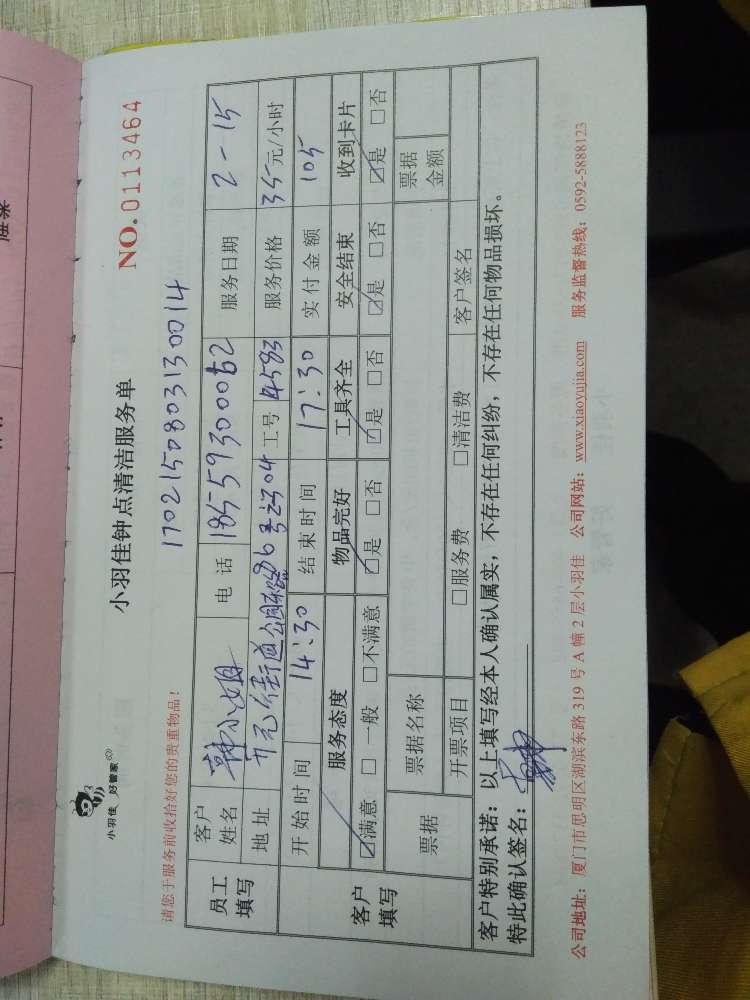 小羽佳 好管家
小羽佳钟点清洁服务单
NO.0113464
请您于服务前收拾好您的贵重物品！
1702150803130014
员工填写 客户姓名 韩小姐 电话 18559300062 服务日期 2-15
地址 开元街道公园 号2304 工号 4583 服务价格 35元/小时
客户填写 开始时间 14:30 结束时间 17:30 实付金额 105
服务态度 物品完好 工具齐全 安全结束 收到卡片
☑满意 □一般 □不满意 ☑是 □否 ☑是 □否 ☑是 □否 ☑是 □否
票据 票据名称 票据金额
开票项目 □服务费 □清洁费 客户签名
客户特别承诺：以上填写经本人确认属实，不存在任何纠纷，不存在任何物品损坏。
特此确认签名：
公司地址：厦门市思明区湖滨东路319号A幢2层小羽佳 公司网站：www.xiaoyujia.com 服务监督热线：0592-5888123